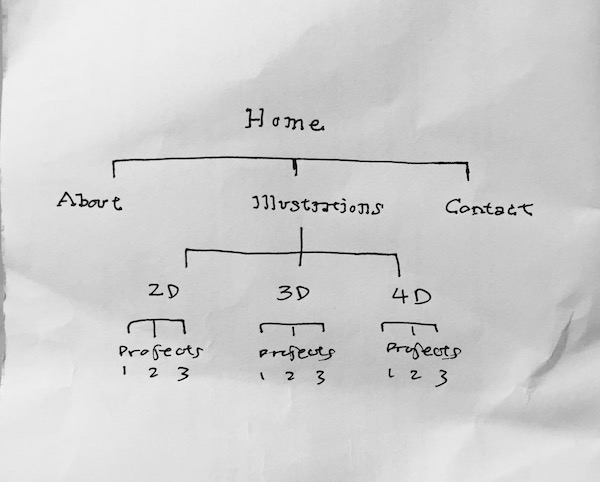 Home
About Illustrations Contact
2D 3D 4D
Projects Projects Projects
1 2 3 1 2 3 1 2 3